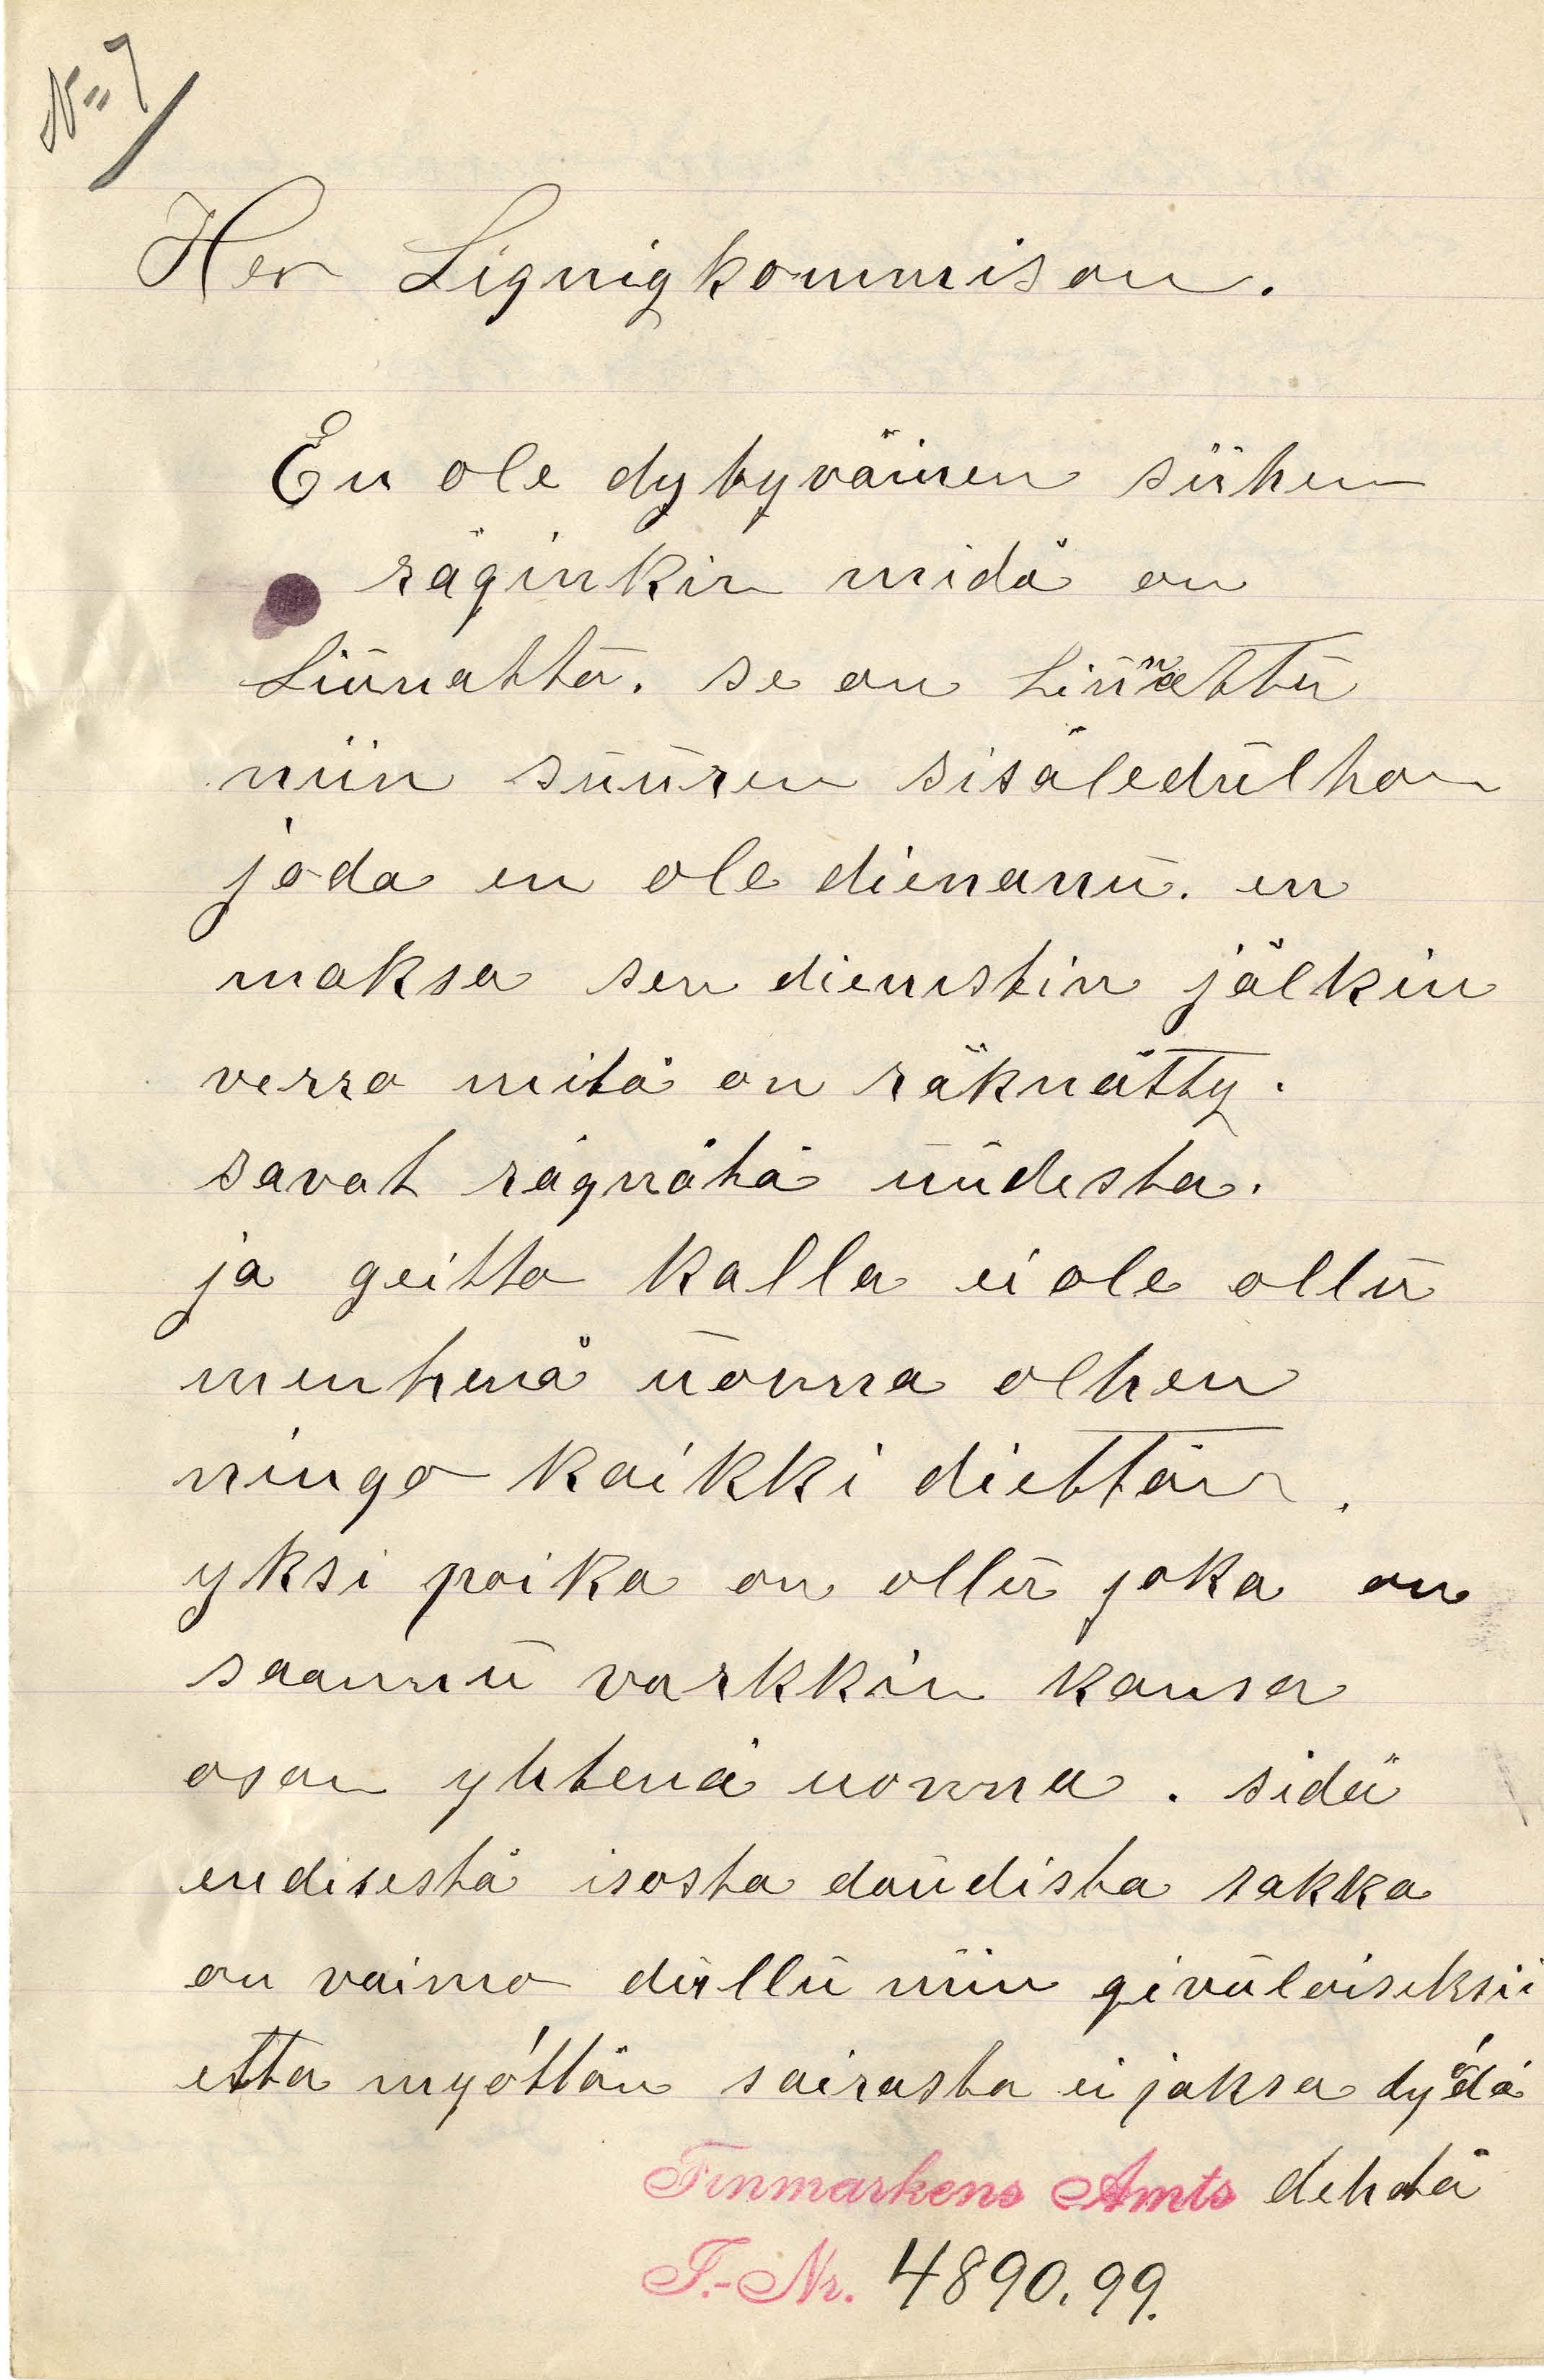 N=7
Her Lignigkommison.
En ole dytyväinen siihen
räginkin midä on
Liünatta. se on Liünattü
niin süüren sisäledülhon
joda en ole dienanü. en
maksa sen dienistin jälkin
verra mitä on räknätty.
savat rägnätä üüdesta.
ja geitto kalla ei ole ollü
menhenä üonna olhen
ningo kaikki diettän.
yksi poika on ollü joka on
saannü varkkin kansa
osan yhtenä uonna. sidä
endisestä isosta doüdista rakka
on vaimo düllü niin givüloiseksii
etta myöttän sairasta ei jaksa työdä
dehdä
Finmarkens Amts
J.-Nr. 4890.99.